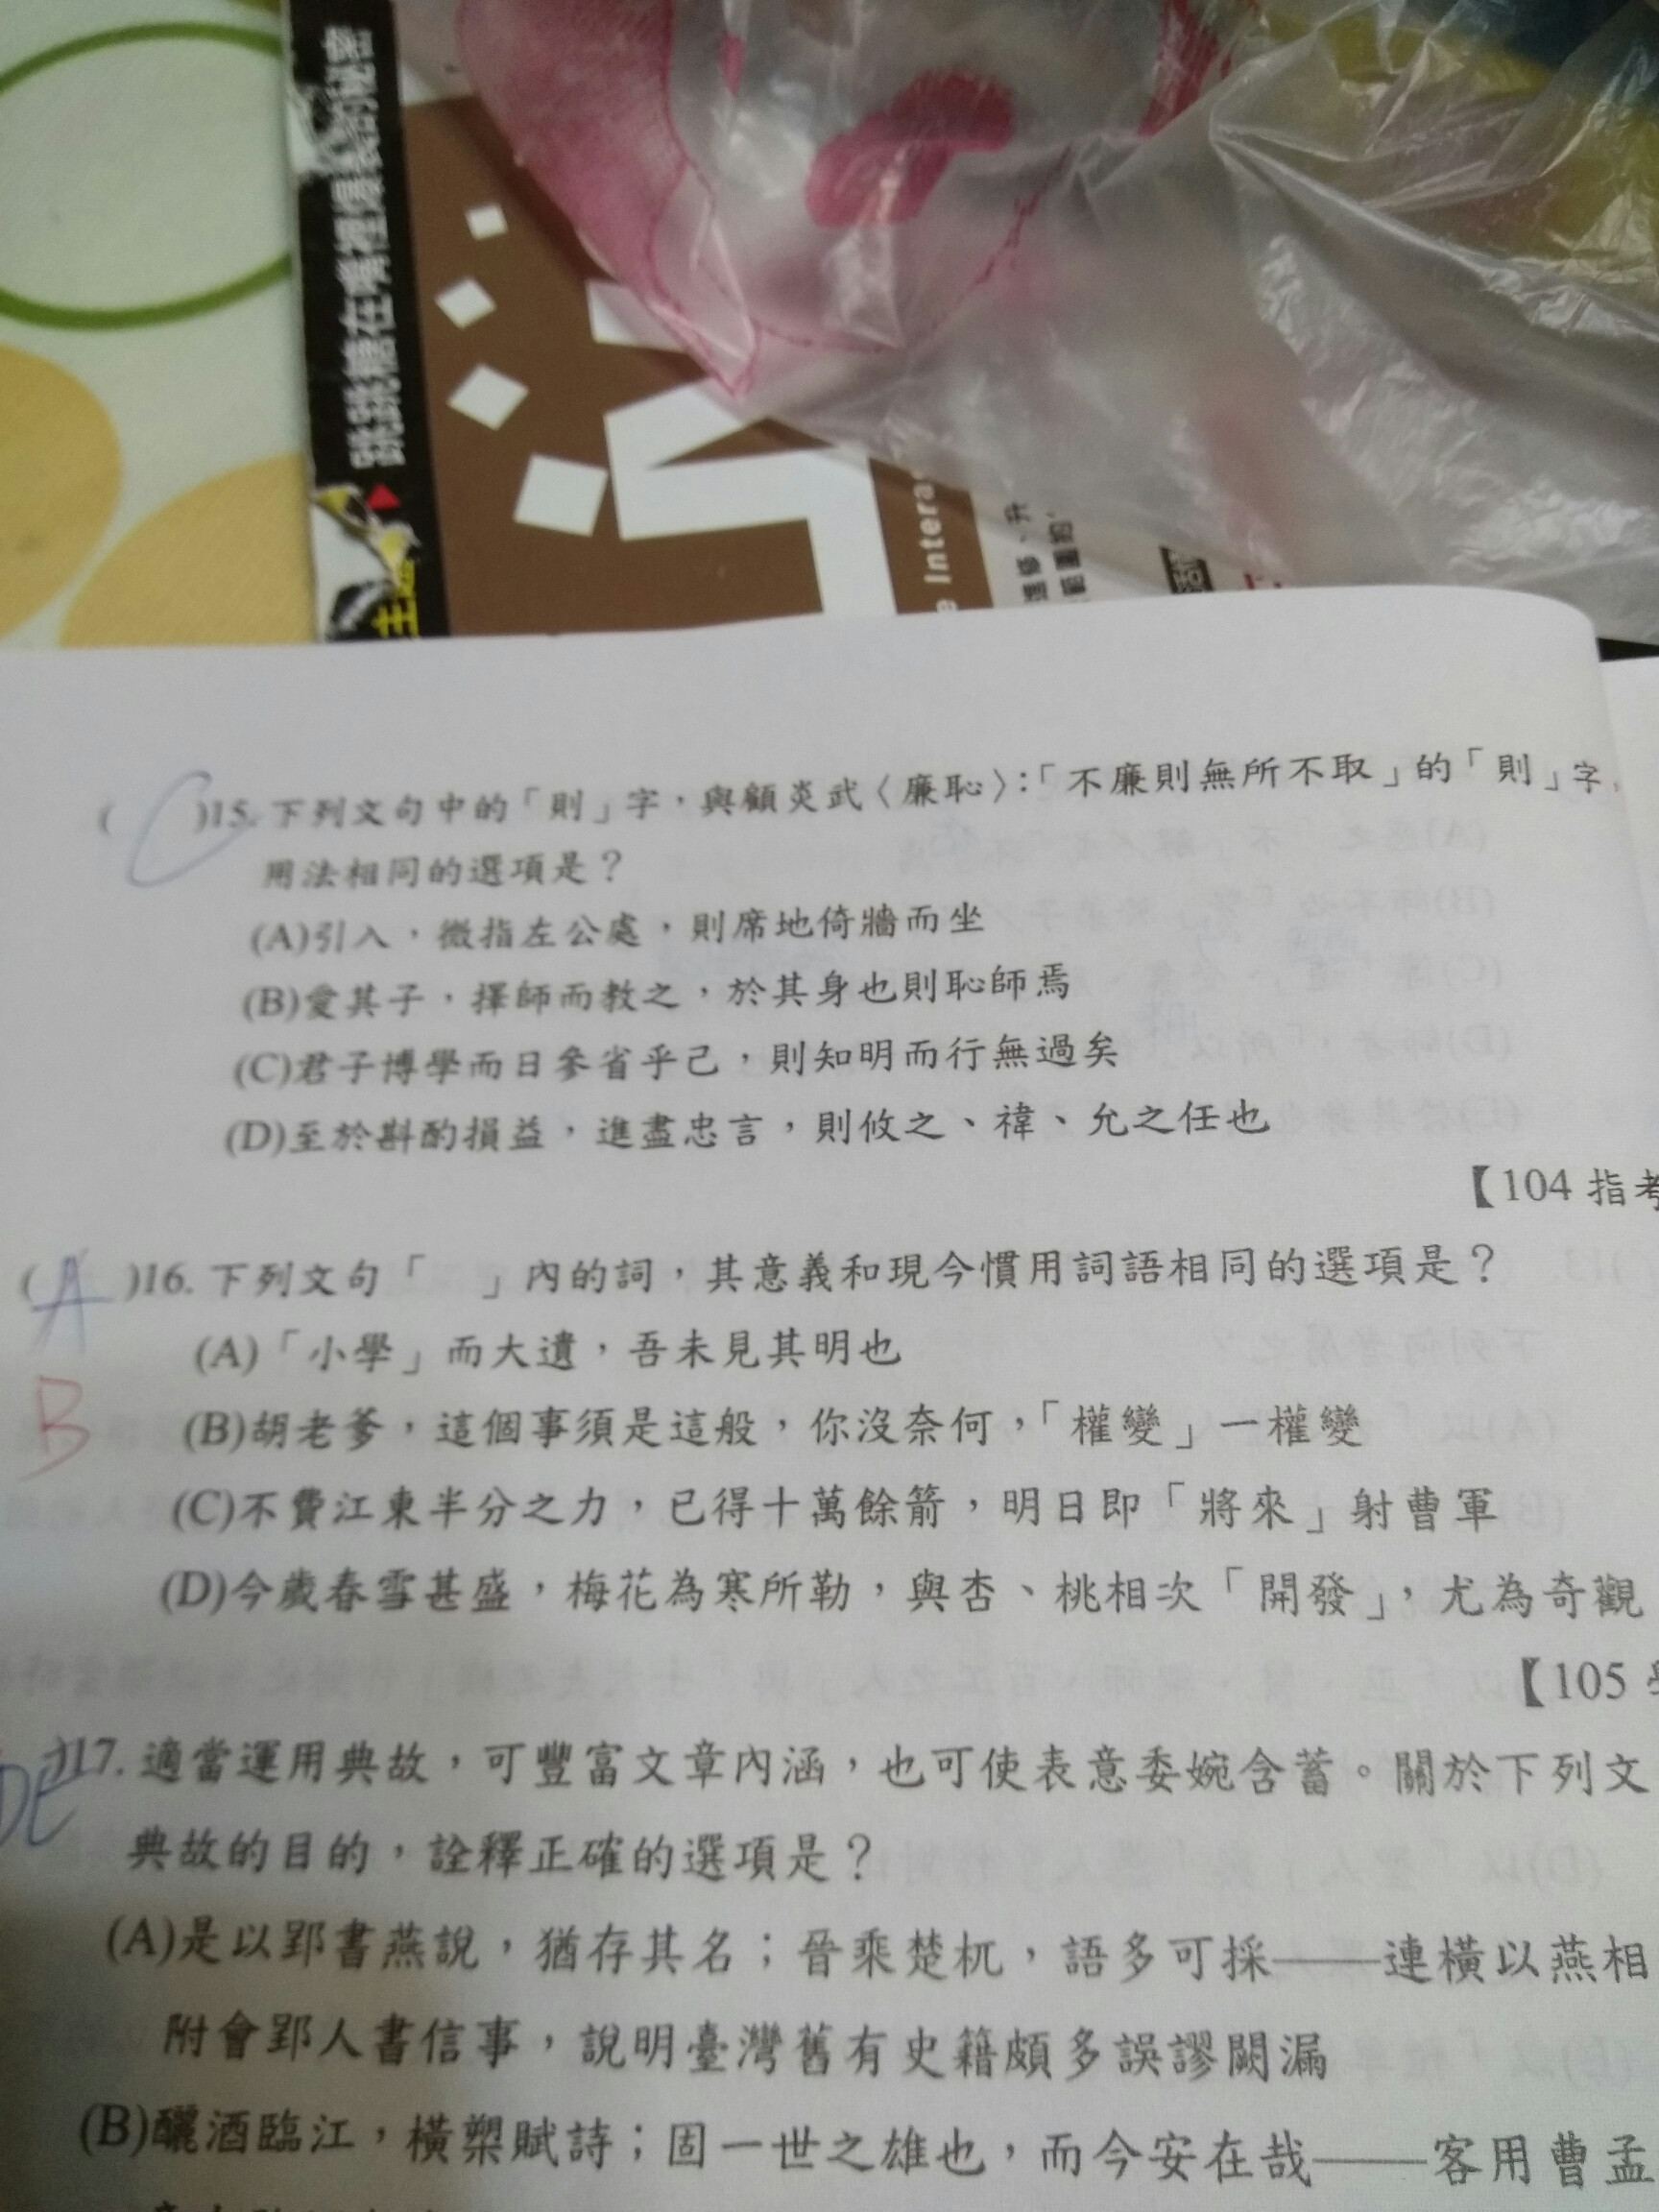 主
Intera
( C )15. 下列文句中的「則」字，與顧炎武〈廉恥〉：「不廉則無所不取」的「則」字，
用法相同的選項是？
(A)引入，微指左公處，則席地倚牆而坐
(B)愛其子，擇師而教之，於其身也則恥師焉
(C)君子博學而日參省乎己，則知明而行無過矣
(D)至於斟酌損益，進盡忠言，則攸之、禕、允之任也
【104 指考
( A )16. 下列文句「　」內的詞，其意義和現今慣用詞語相同的選項是？
B
(A)「小學」而大遺，吾未見其明也
(B)胡老爹，這個事須是這般，你沒奈何，「權變」一權變
(C)不費江東半分之力，已得十萬餘箭，明日即「將來」射曹軍
(D)今歲春雪甚盛，梅花為寒所勒，與杏、桃相次「開發」，尤為奇觀
【105
DE )17. 適當運用典故，可豐富文章內涵，也可使表意委婉含蓄。關於下列文
典故的目的，詮釋正確的選項是？
(A)是以郢書燕說，猶存其名；晉乘楚杌，語多可採——連橫以燕相
附會郢人書信事，說明臺灣舊有史籍頗多誤謬闕漏
(B)釃酒臨江，橫槊賦詩；固一世之雄也，而今安在哉——客用曹孟